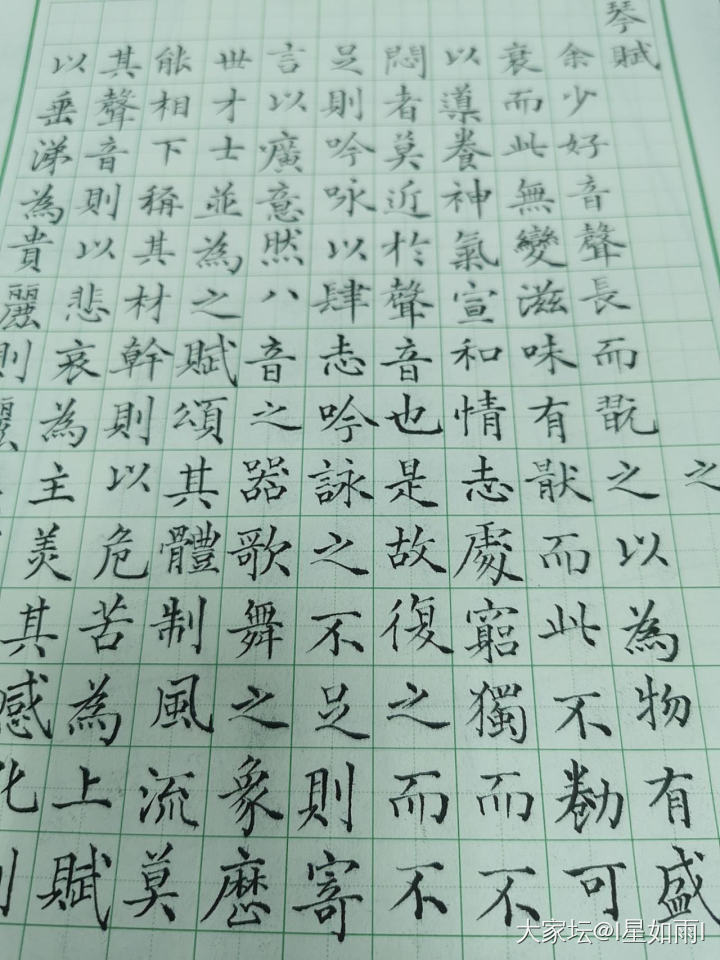 琴賦之
余少好音聲長而翫之以為物有盛
衰而此無變滋味有猒而此不勌可
以導養神氣宣和情志處窮獨而不
悶者莫近於聲音也是故復之而不
足則吟咏以肆志吟詠之不足則寄
言以廣意然八音之器歌舞之象歷
世才士並為之賦頌其體制風流莫
能相下稱其材幹則以危苦為上賦
其聲音則以悲哀為主美其感化則
以垂涕為貴麗則麗
大家坛@I星如雨I